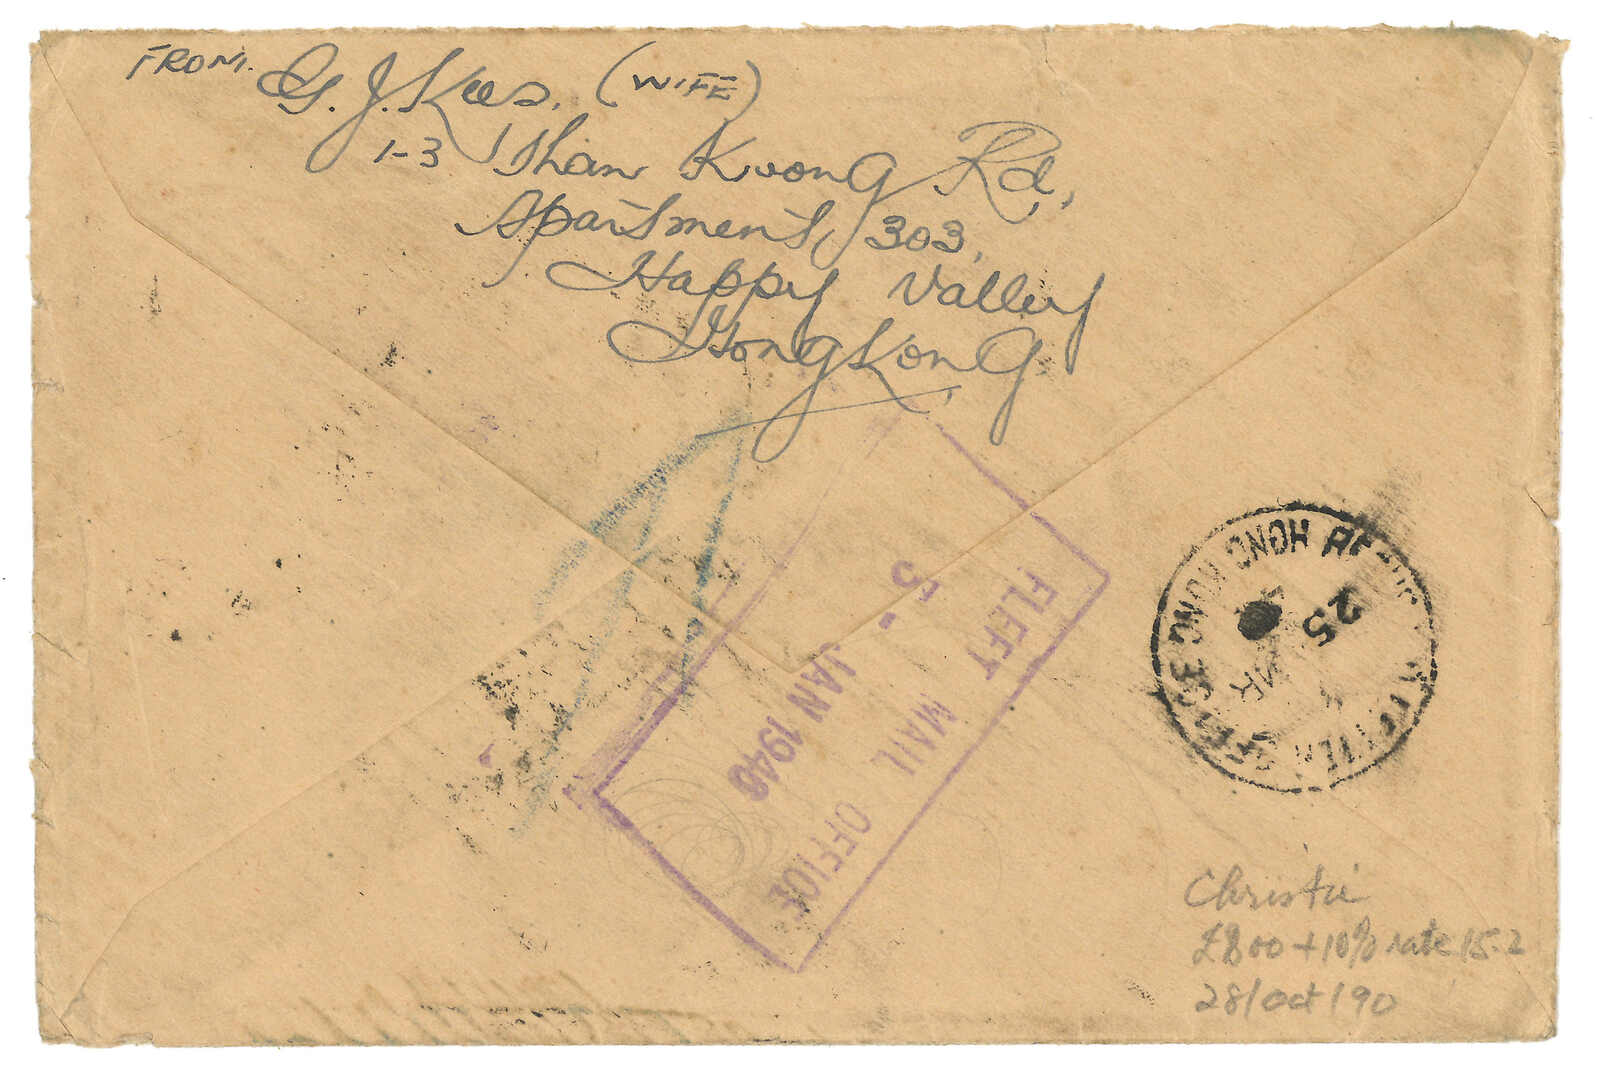 FROM. G. J. Kees. (WIFE)
1-3 Shan Kwong Rd,
Apartment, 303,
Happy Valley
HongKong
FLEET MAIL OFFICE
5 - JAN 1940
HONG KONG
25
Christie
£800 + 10% rate 15.2
28/oct/90